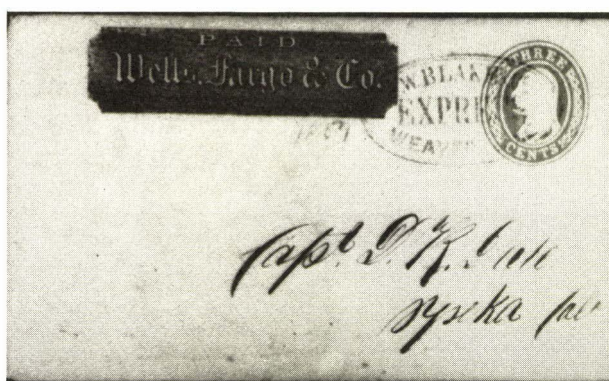 PAID
Wells, Fargo & Co.
W. BLAKE
EXPRE
WEAV
THREE
CENTS
Capt. D. R.
Yreka Cal